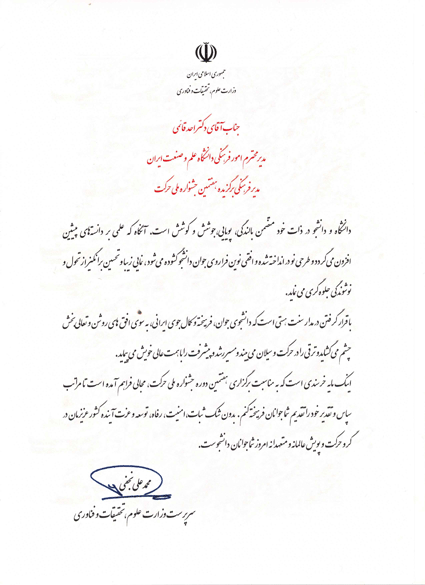 جمهوری اسلامی ایران
وزارت علوم، تحقیقات و فناوری
جناب آقای دکتر احد قائمی
مدیر محترم امور فرهنگی دانشگاه علم و صنعت ایران
مدیر فرهنگی برگزیده هفتمین جشنواره ملی حرکت
دانشگاه و دانشجو در ذات خود متضمن بالندگی، پویایی، جوشش و کوشش است. آنگاه که علمی بر دانسته‌های پیشین
افزون می‌گردد و طرحی نو در انداخته شده و افقی نوین فراروی جوان دانشجو گشوده می‌شود، نمایی زیبا و تحسین برانگیز از تحول و
نوشوندگی جلوه‌گری می‌نماید.
با قرار گرفتن در مدار سنت هستی است که دانشجوی جوان، فریخته و کمال جوی ایرانی، به سوی افق های روشن و تعالی بخش
چشم می‌گشاید و ترقی را در حرکت و سیلان می‌بیند و مسیر رشد و پیشرفت را با همت عالی خویش می‌پیماید.
اینک مایه خرسندی است که به مناسبت برگزاری هفتمین دوره جشنواره ملی حرکت، مجالی فراهم آمده است تا مراتب
سپاس و تقدیر خود را تقدیم شما جوانان فریخته کنم، بدون شک ثبات، امنیت، رفاه، توسعه و عزت آینده کشور عزیزمان در
گرو حرکت و پویش عالمانه و متعهدانه امروز شما جوانان دانشجوست.
محمد علی نجفی
سرپرست وزارت علوم، تحقیقات و فناوری